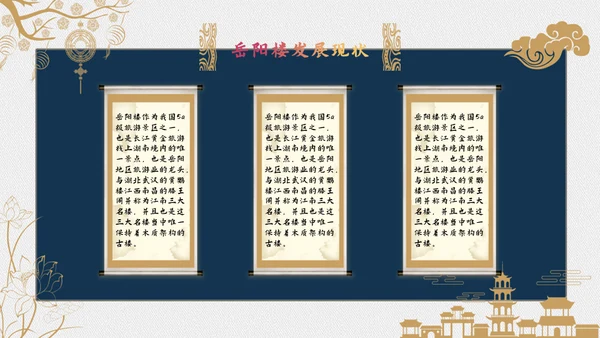 岳阳楼发展现状
岳阳楼作为我国5a
级旅游景区之一，
也是长江黄金旅游
线上湖南境内唯
一景点，也是岳阳
地区旅游业的龙头，
与湖北武汉的黄鹤
楼江西南昌的滕王
阁并称为江南三大
名楼，并且也是这
三大名楼当中唯一
保持着木质架构的
古楼。
岳阳楼作为我国5a
级旅游景区之一，
也是长江黄金旅游
线上湖南境内唯
一景点，也是岳阳
地区旅游业的龙头，
与湖北武汉的黄鹤
楼江西南昌的滕王
阁并称为江南三大
名楼，并且也是这
三大名楼当中唯一
保持着木质架构的
古楼。
岳阳楼作为我国5a
级旅游景区之一，
也是长江黄金旅游
线上湖南境内唯
一景点，也是岳阳
地区旅游业的龙头，
与湖北武汉的黄鹤
楼江西南昌的滕王
阁并称为江南三大
名楼，并且也是这
三大名楼当中唯一
保持着木质架构的
古楼。